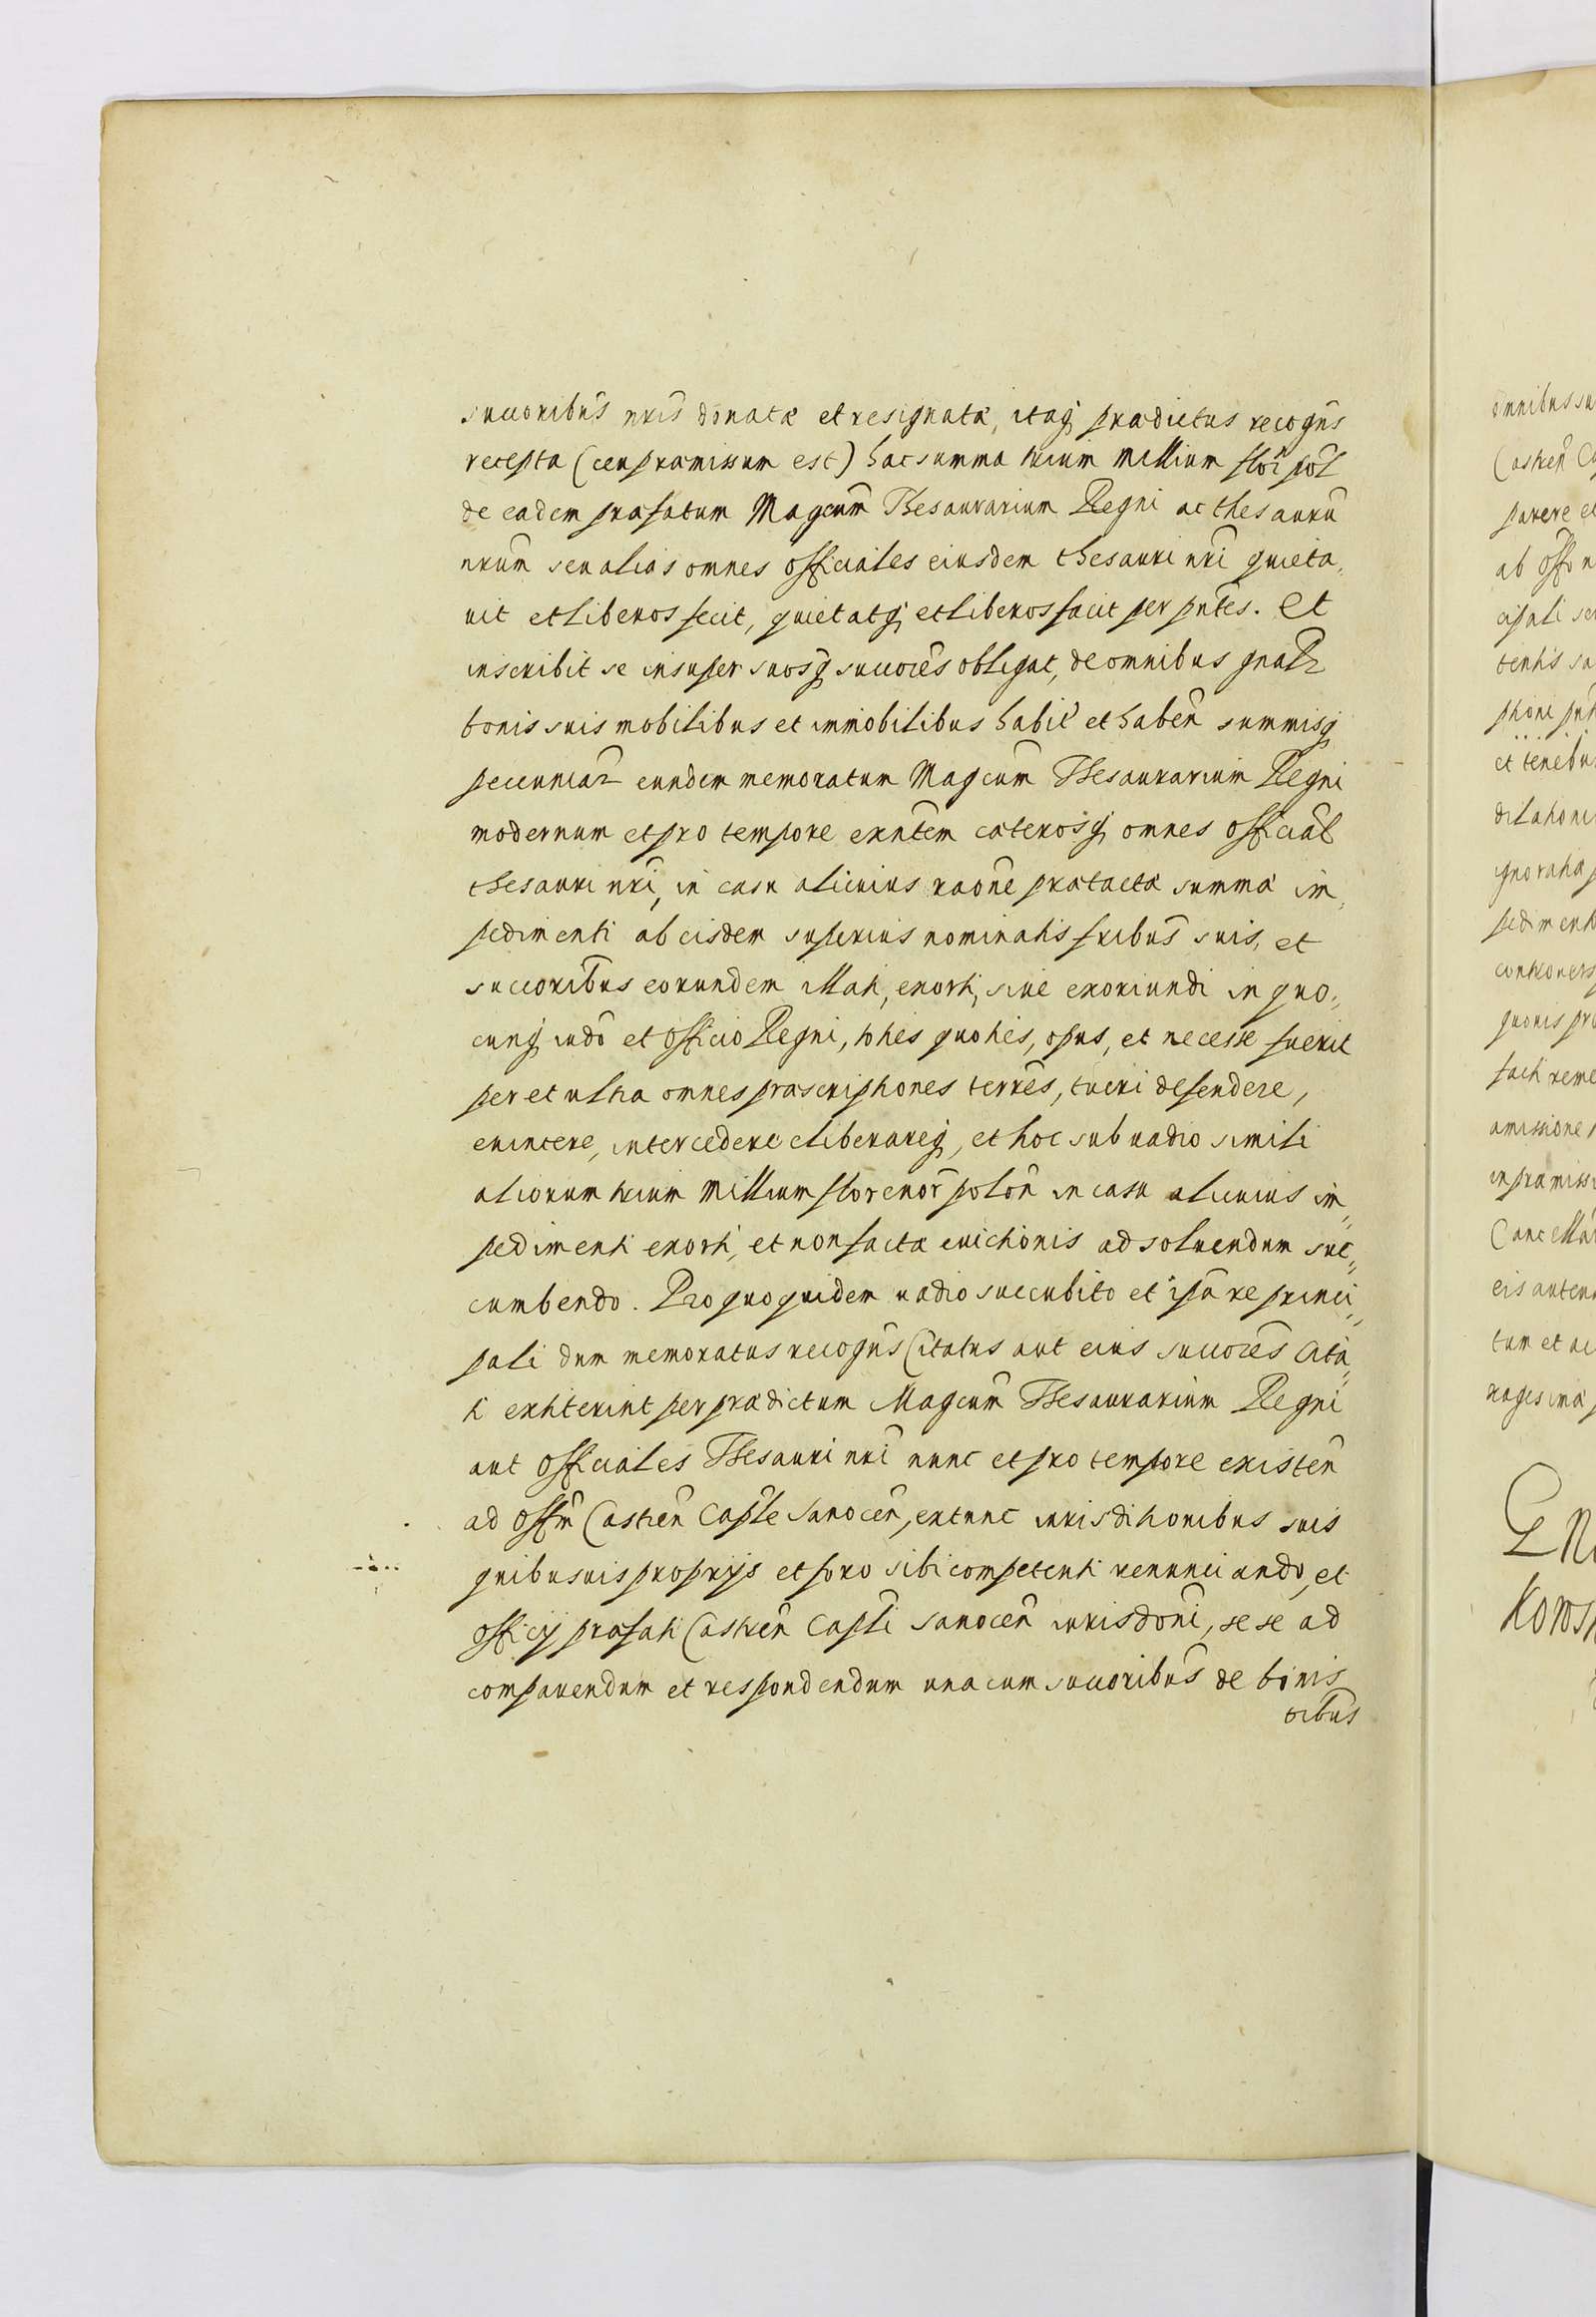 succoribus nris donatæ et resignatæ, itaq prædictus recogns
recepta (ceu præmissum est) hac summa trium Millium flor pol
de eadem præfatum Magcum Thesaurarium Regni ac thesaurū
nrum seu alias omnes Officiales eiusdem thesauri nri quieta,
uit et liberos fecit, quietatq et liberos facit per pntes. Et
inscribit se insuper suosq succores obligat, de omnibus gnalr
bonis suis mobilibus et immobilibus habit et haben summisq
pecuniar eundem memoratum Magcum Thesaurarium Regni
modernum et pro tempore exntem cæterosq omnes Official
thesauri nri, in casu alicuius raone prætactæ summæ im,
pedimenti ab eisdem superius nominatis fribus suis, et
succoribus eorundem illati, exorti, siue exoriundi in quo,,
cunq iudo et Officio Regni, toties quoties, opus, et necesse fuerit
per et ultra omnes præscriptiones terres, tueri defendere,
euincere, intercedere eliberareq, et hoc sub uadio simili
aliorum trium Millium florenor polon in casu alicuius im,,
pedimenti exorti, et non factæ euictionis ad soluendum suc,,
cumbendo. Pro quo quidem uadio succubito et ipsa re princi,,
pali dum memoratus recogns Citatus aut eius succores Cita,,
ti extiterint per prædictum Magcum Thesaurarium Regni
aut Officiales Thesauri nri nunc et pro tempore existen
ad Offm Castren Caple Sanocen, extunc iurisditionibus suis
quibusuis proprijs et foro sibi competenti renunciando, et
Officij præfati Castren Capli Sanocen iurisdoni, se se ad
comparendum et respondendum una cum succoribus de bonis
oibus
omnibus su
Castren Ca
parere et
ab Offo n
cipali se
tentis sa
ptioni
et tenebu
dilationi
gnoratia p
pediment
controuers
quouis pr
facti reme
amissione
in præmiss
Cancellar
eis autem
tum et ac
ragesima p